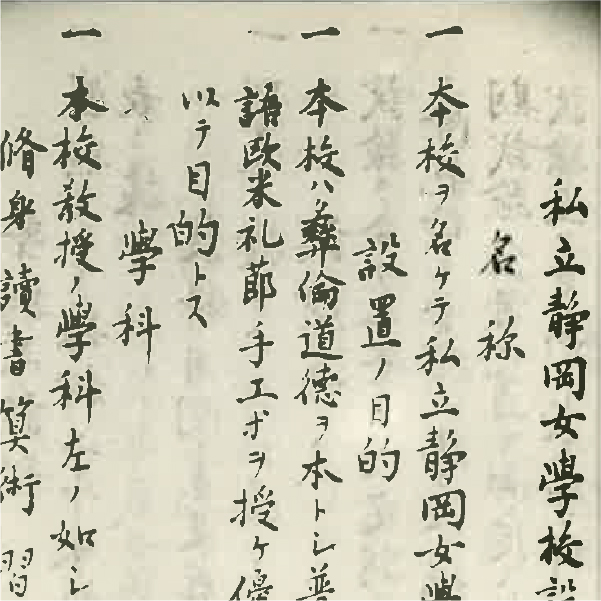 私立静岡女學校設
名称
一 本校ヲ名ケテ私立静岡女學
設置ノ目的
一 本校ハ彝倫道德ヲ本トシ普
語欧米礼節手工ホヲ授ケ優
以テ目的トス
學科
一 本校敎授ノ學科左ノ如シ
脩身讀書算術習